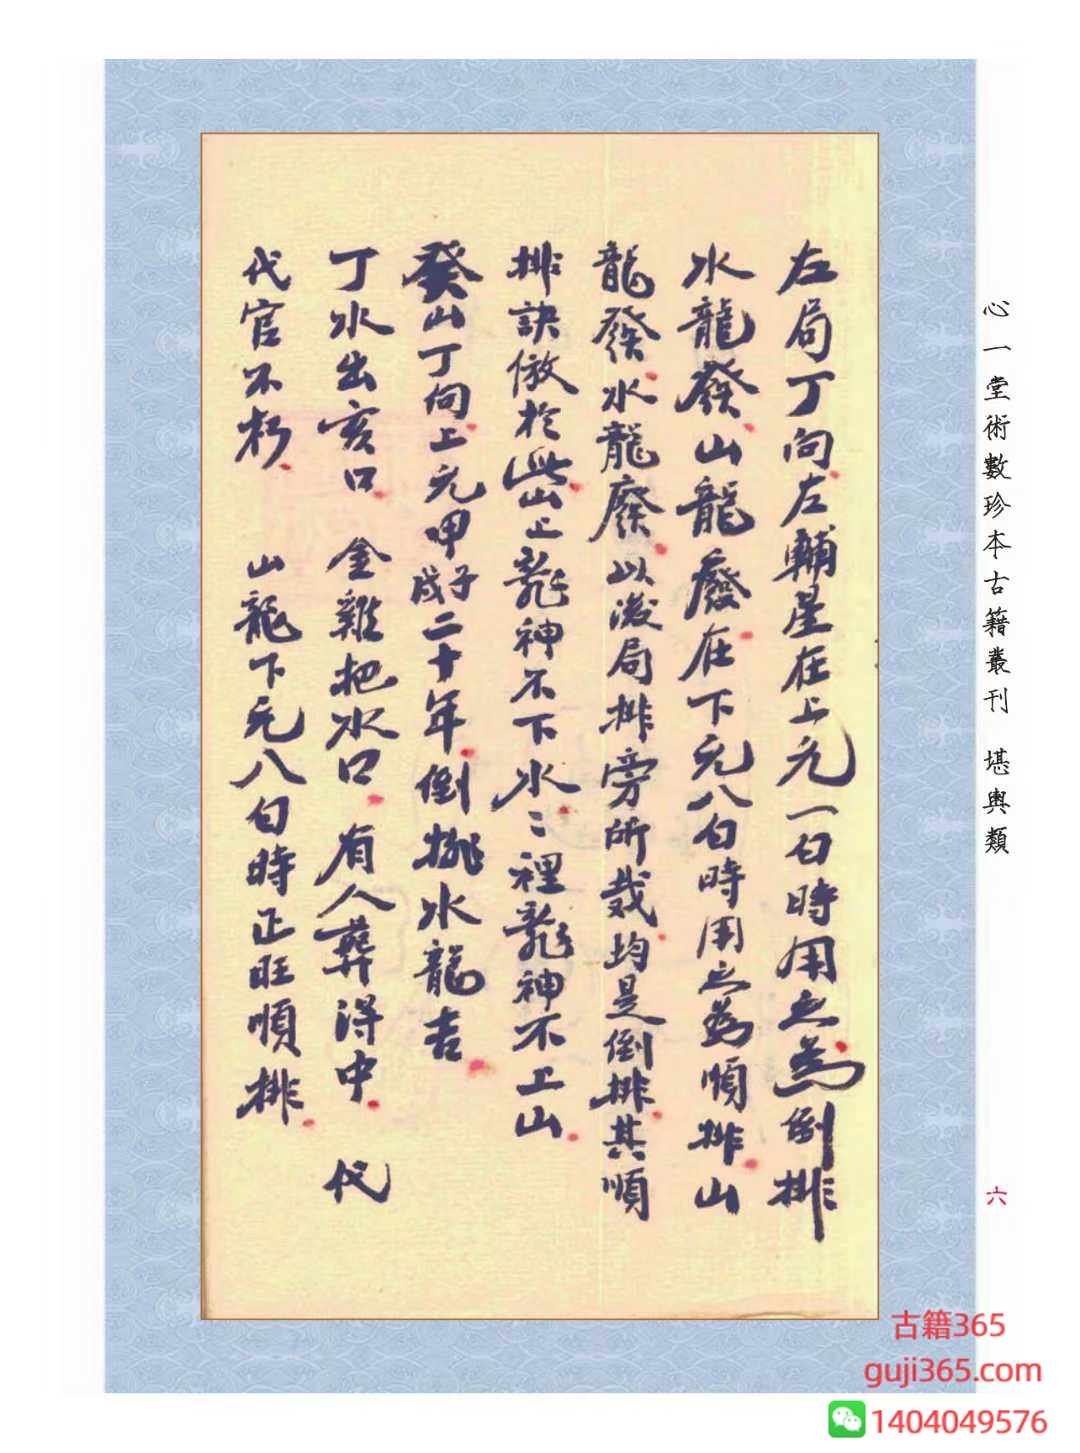 心一堂術數珍本古籍叢刊 堪輿類
左局丁向左輔星在上元一白時用之為倒排
水龍發山龍廢在下元八白時用之為順排山
龍發水龍廢以後局排旁所裁均是倒排其順
排訣倣於此山上龍神不下水〻裡龍神不上山
癸山丁向上元甲子戌二十年倒排水龍吉
丁水出亥口 金雞把水口 有人葬得中 代
代官不朽 山龍下元八白時正旺順排
六
古籍365
guji365.com
1404049576